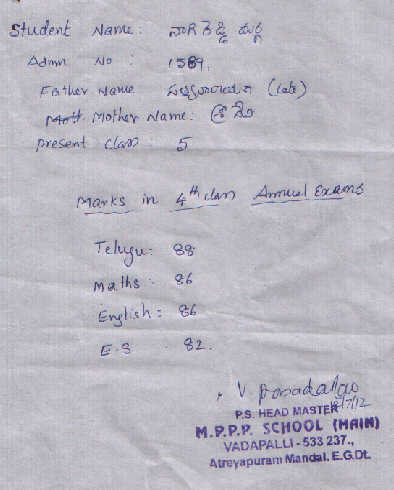 Student Name: నాగిరెడ్డి దుర్గ
Admn No : 1589.
Father Name (late)
Mother Name:
present class : 5
Marks in 4th class Annual Exams
Telugu: 88
Maths : 86
English : 86
E.S : 82.
V
P.S. HEAD MASTER /7/12
M.P.P.P. SCHOOL (MAIN)
VADAPALLI - 533 237.,
Atreyapuram Mandal, E.G.Dt.